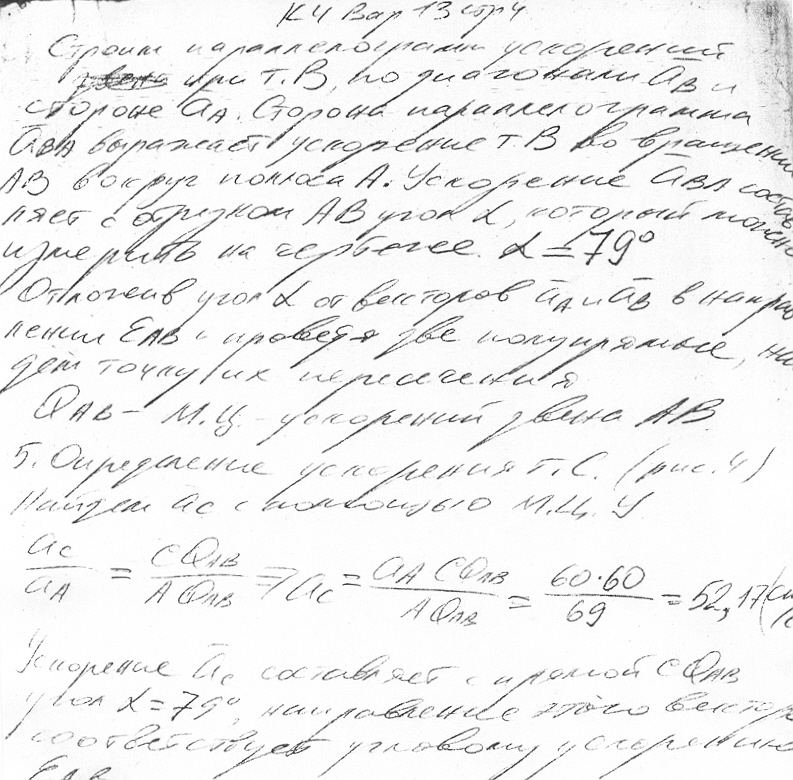 К4 Вар 13 стр 4
Строим параллелограмм ускорений
при т. В, по диагонали a̅B и
стороне a̅A. Сторона параллелограмма
a̅BA выражает ускорение т. В во вращении
АВ вокруг полюса А. Ускорение a̅BA состав
ляет с отрезком АВ угол α, который можно
измерить на чертеже. α = 79°
Отложив угол α от векторов a̅A и a̅B в направ
лении EAB и проведя две полупрямые, на
дем точку их пересечения
QAB – М.Ц. – ускорений звена АВ.
5. Определение ускорения т. С. (рис. 4)
Найдем aC с помощью М.Ц.У
aC/aA = CQAB/AQAB => aC = aA CQAB/AQAB = 60·60/69 = 52,17 (см/с
Ускорение a̅C составляет с прямой CQAB
угол α = 79°, направление этого вектора
соответствует угловому ускорению
EAB